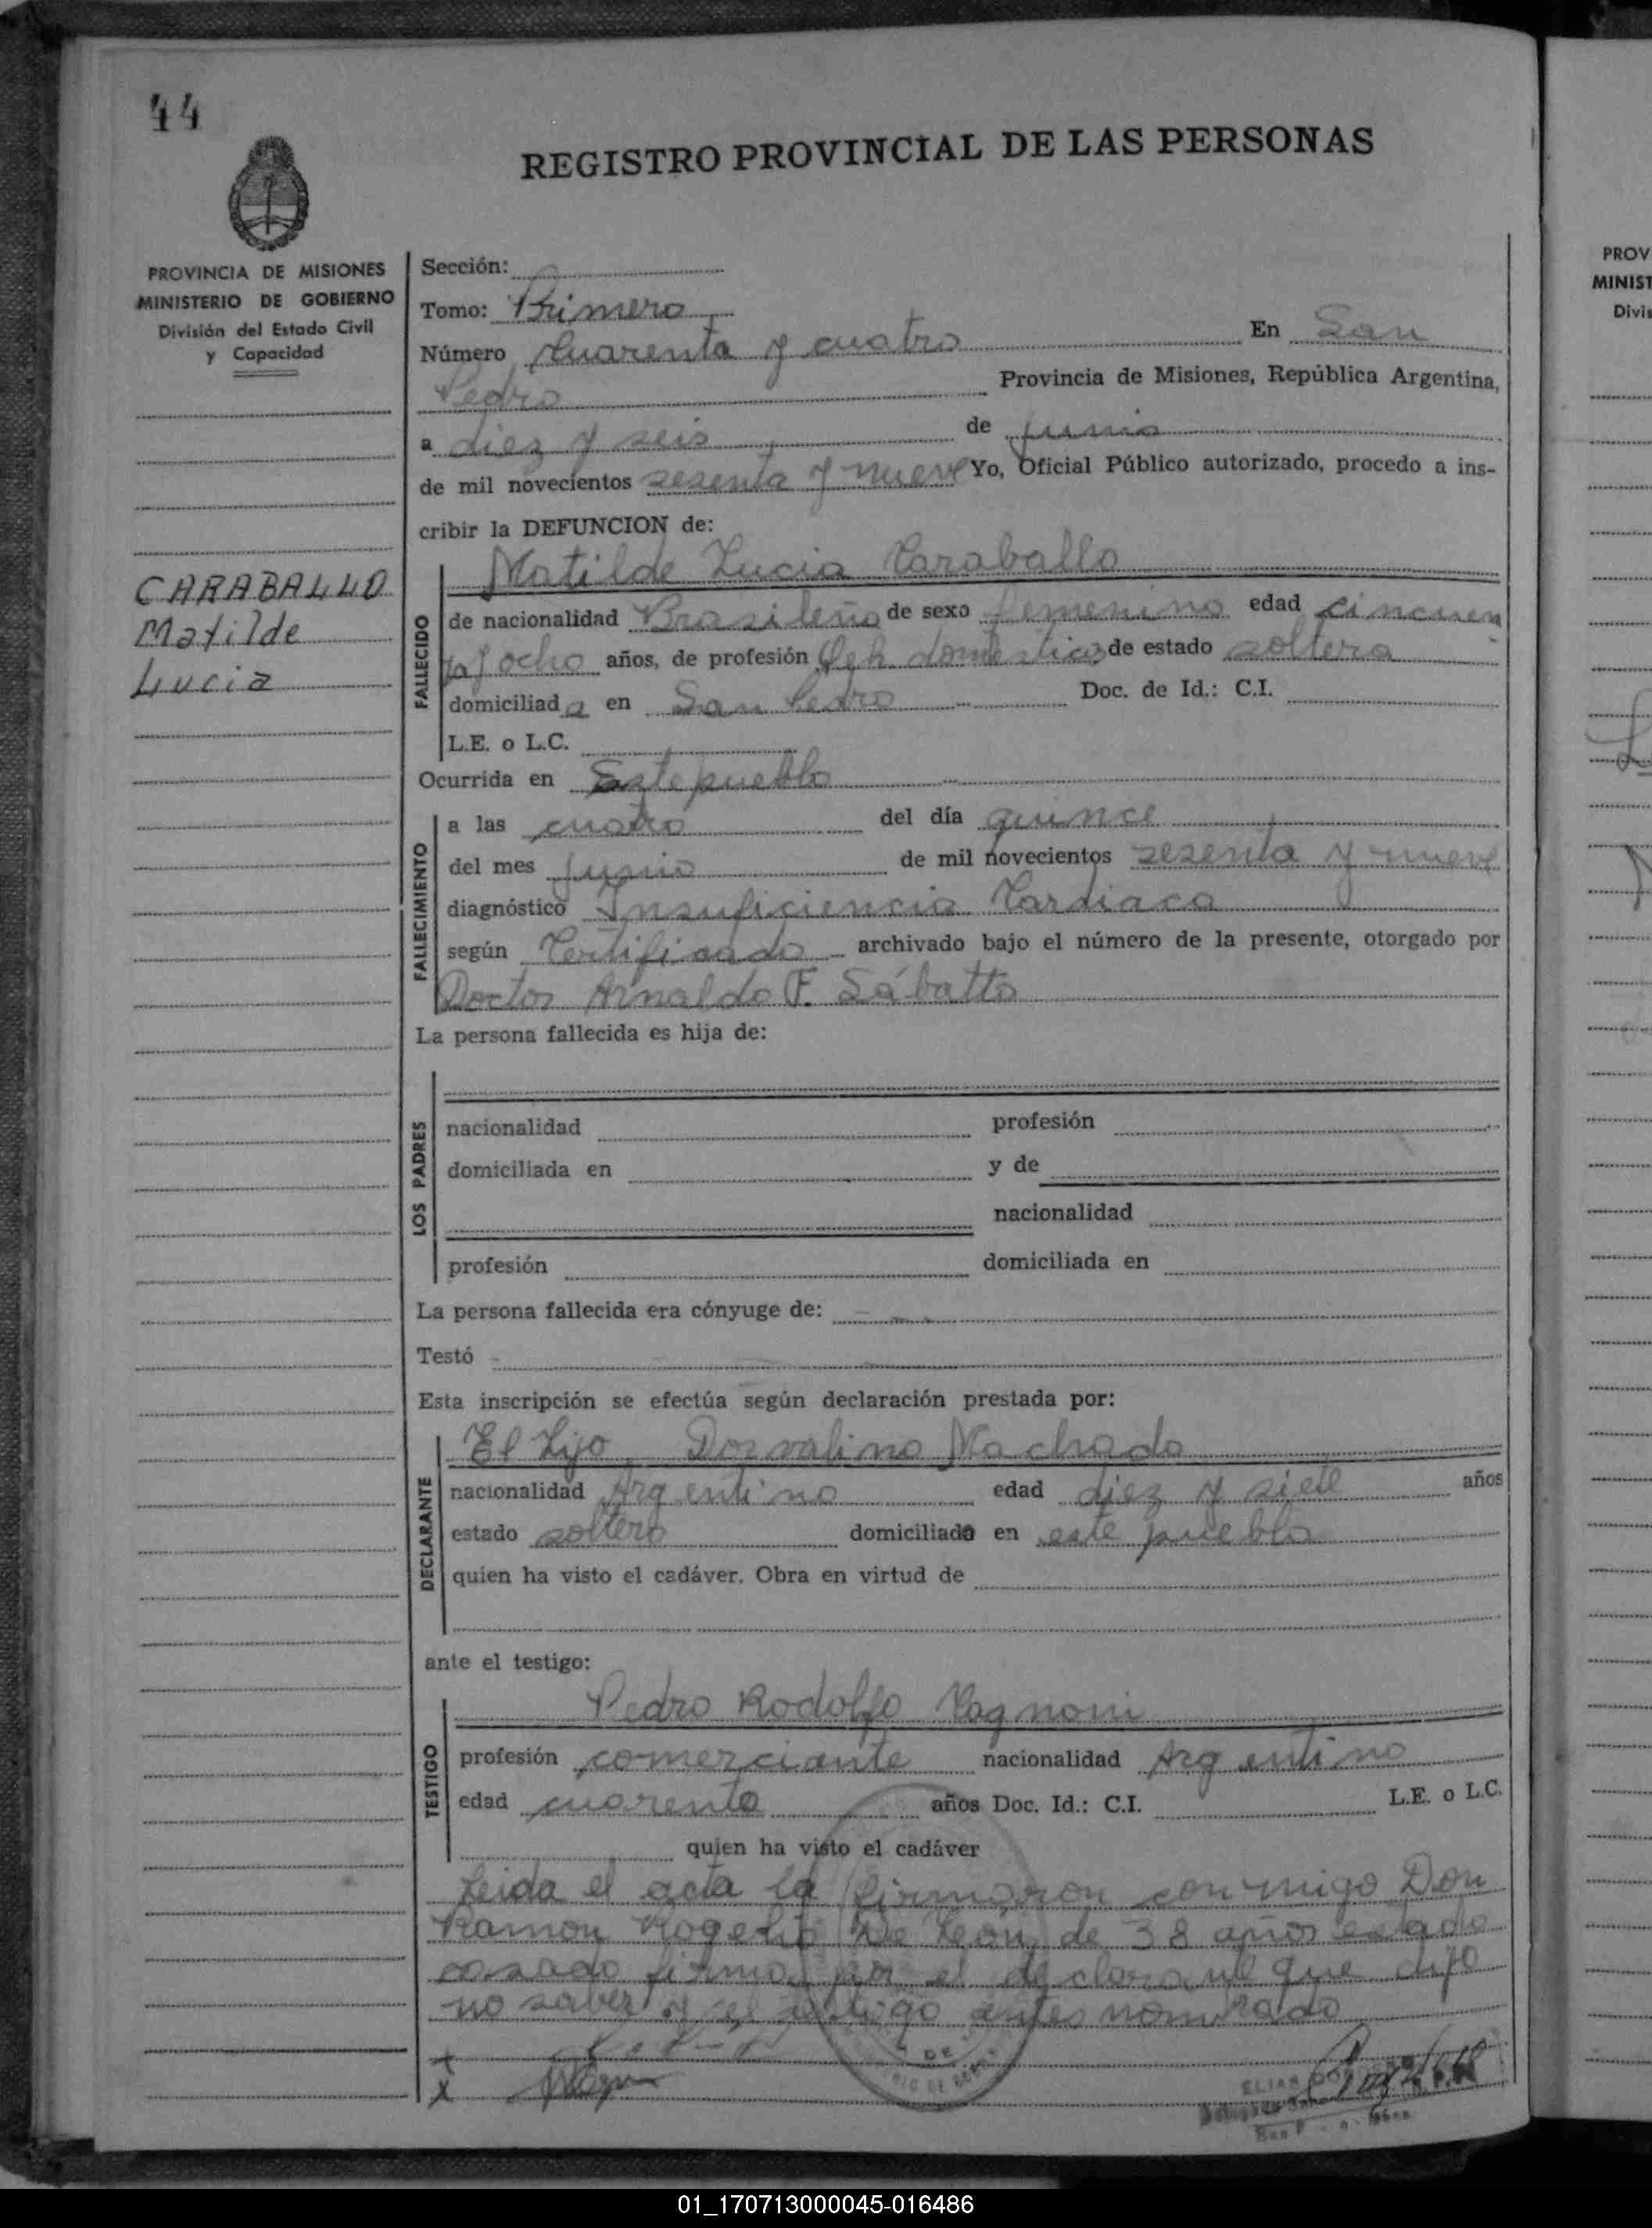 44
REGISTRO PROVINCIAL DE LAS PERSONAS
PROVINCIA DE MISIONES
MINISTERIO DE GOBIERNO
División del Estado Civil
y Capacidad
CARABALLO
Matilde
Lucia
Sección:
Tomo: Primero
Número Cuarenta y cuatro En San
Pedro Provincia de Misiones, República Argentina,
a diez y seis de junio
de mil novecientos sesenta y nueve Yo, Oficial Público autorizado, procedo a ins-
cribir la DEFUNCION de:
FALLECIDO
Matilde Lucia Caraballo
de nacionalidad Brasileña de sexo femenino edad cincuen
ta y ocho años, de profesión Qeh. domesticos de estado soltera
domiciliada en San Pedro Doc. de Id.: C.I.
L.E. o L.C.
Ocurrida en Este pueblo
FALLECIMIENTO
a las cuatro del día quince
del mes junio de mil novecientos sesenta y nueve
diagnóstico Insuficiencia Cardiaca
según Certificado archivado bajo el número de la presente, otorgado por
Doctor Arnaldo F. Sábatto
La persona fallecida es hija de:
LOS PADRES
nacionalidad profesión
domiciliada en y de
nacionalidad
profesión domiciliada en
La persona fallecida era cónyuge de:
Testó
Esta inscripción se efectúa según declaración prestada por:
DECLARANTE
El hijo Dorvalino Machado
nacionalidad Argentino edad diez y siete años
estado soltero domiciliado en este pueblo
quien ha visto el cadáver. Obra en virtud de
ante el testigo:
TESTIGO
Pedro Rodolfo Cagnoni
profesión comerciante nacionalidad Argentino
edad cuarenta años Doc. Id.: C.I. L.E. o L.C.
quien ha visto el cadáver
Leida el acta la firmaron conmigo Don
Ramon Rogelio De Leon, de 38 años estado
casado firma por el declarante que dijo
no saber y el testigo antes nombrado
DE
ELIAS
PROV
MINIST
Divis
01_170713000045-016486